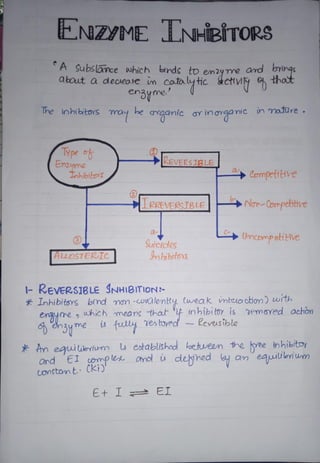 ENZYME INHIBITORS
"A substance which binds to enzyme and brings
about a decrease in catalytic activity of that
enzyme."
The inhibitors may be organic or inorganic in nature.
Type of
Enzyme
Inhibitors
①
REVERSIBLE
a- Competitive
b- Non-Competitive
c- Uncompetitive
②
IRREVERSIBLE
a-
Suicides
Inhibitors
③
ALLOSTERIC
1- REVERSIBLE INHIBITION:-
* Inhibitors bind non-covalently (weak interaction) with
enzyme, which means that if inhibitor is removed action
of enzyme is fully restored - Reversible
* An equilibrium is established between the free inhibitor
and EI complex and is defined by an equilibrium
constant. (Ki)
E + I ⇌ EI